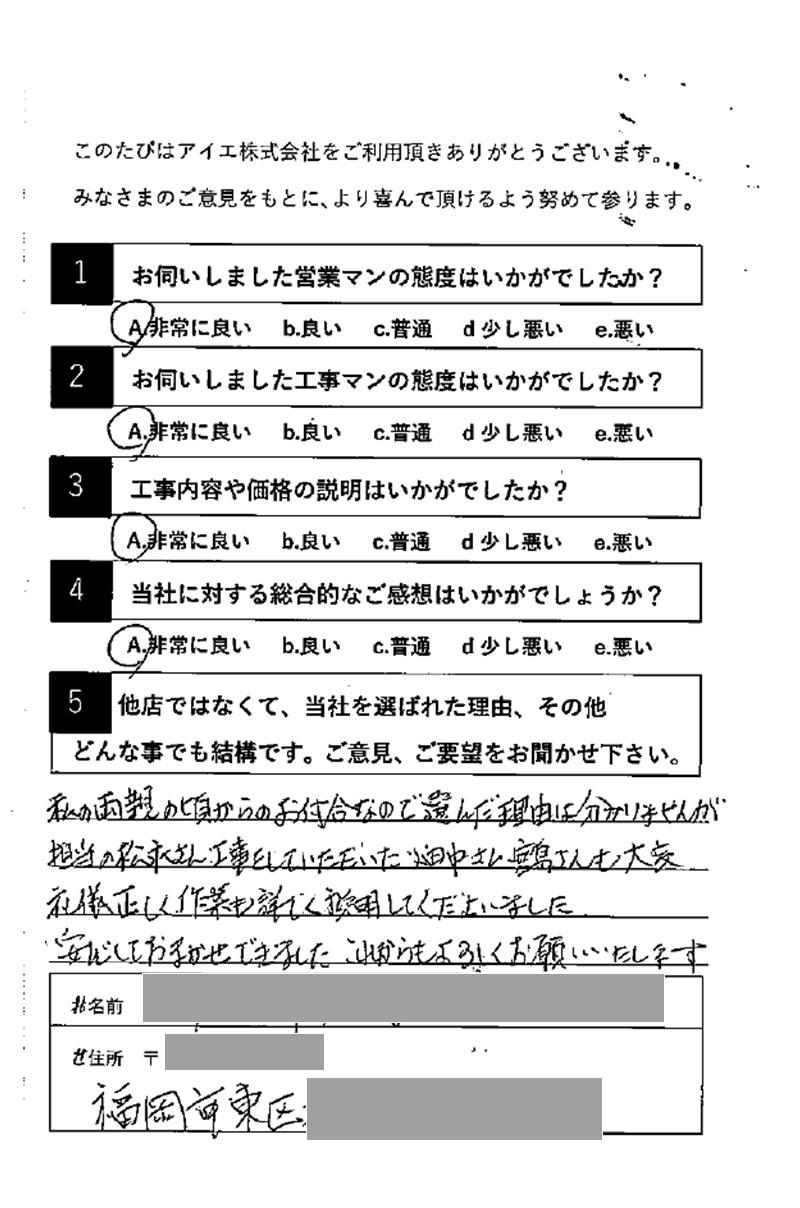 このたびはアイエ株式会社をご利用頂きありがとうございます。
みなさまのご意見をもとに、より喜んで頂けるよう努めて参ります。
1 お伺いしました営業マンの態度はいかがでしたか？
A.非常に良い b.良い c.普通 d 少し悪い e.悪い
2 お伺いしました工事マンの態度はいかがでしたか？
A.非常に良い b.良い c.普通 d 少し悪い e.悪い
3 工事内容や価格の説明はいかがでしたか？
A.非常に良い b.良い c.普通 d 少し悪い e.悪い
4 当社に対する総合的なご感想はいかがでしょうか？
A.非常に良い b.良い c.普通 d 少し悪い e.悪い
5 他店ではなくて、当社を選ばれた理由、その他
どんな事でも結構です。ご意見、ご要望をお聞かせ下さい。
私の両親の頃からのお付合なので選んだ理由は分かりませんが
担当の松永さん工事をしていただいた畑中さん宮島さんも大変
礼儀正しく作業も詳しく説明してくださいました
安心しておまかせできました これからもよろしくお願いいたします
お名前
ご住所 〒
福岡市東区